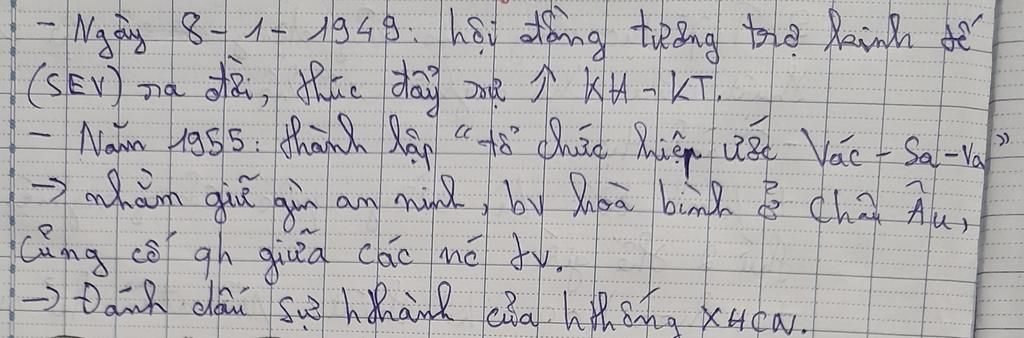 - Ngày 8-1-1949: hội đồng tương trợ kinh tế
(SEV) ra đời, thúc đẩy sự ↑ KH-KT.
- Năm 1955: thành lập "tổ chức hiệp ước Vác-Sa-Va"
→ nhằm giữ gìn an ninh, bv hoà bình ở Châu Âu,
củng cố qh giữa các nc tv.
→ Đánh dấu sự hthành của hthống XHCN.